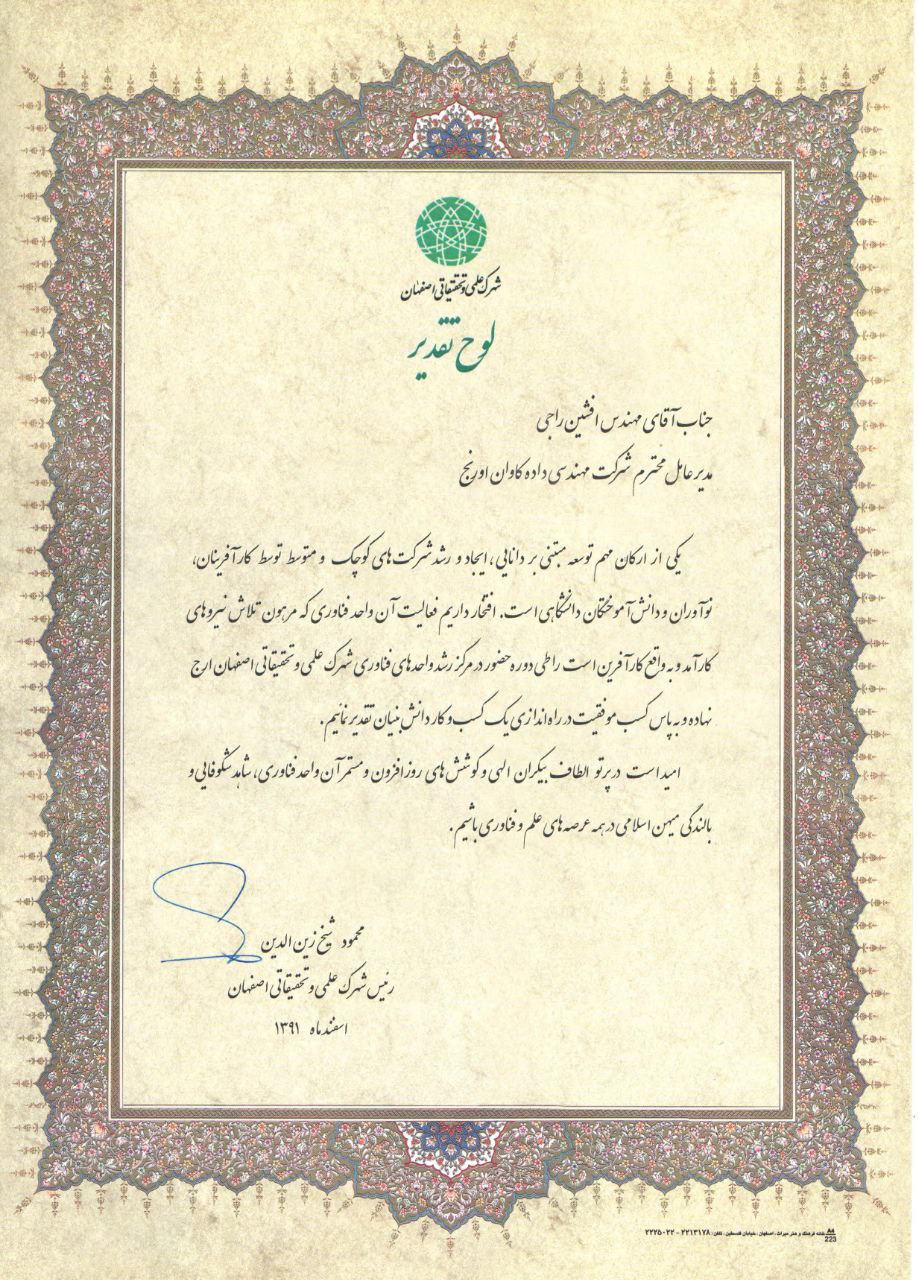 شهرک علمی و تحقیقاتی اصفهان
لوح تقدیر
جناب آقای مهندس افشین راجی
مدیر عامل محترم شرکت مهندسی داده کاوان اورنج
یکی از ارکان مهم توسعه مبتنی بر دانایی، ایجاد و رشد شرکت های کوچک و متوسط توسط کارآفرینان،
نوآوران و دانش آموختگان دانشگاهی است. افتخار داریم فعالیت آن واحد فناوری که مرهون تلاش نیروهای
کارآمد و به واقع کارآفرین است را طی دوره حضور در مرکز رشد واحدهای فناوری شهرک علمی و تحقیقاتی اصفهان ارج
نهاده و به پاس کسب موفقیت در راه اندازی یک کسب و کار دانش بنیان تقدیر نمائیم.
امید است در پرتو الطاف بیکران الهی و کوشش های روز افزون و مستمر آن واحد فناوری، شاهد شکوفایی و
بالندگی میهن اسلامی در همه عرصه های علم و فناوری باشیم.
محمود شیخ زین الدین
رئیس شهرک علمی و تحقیقاتی اصفهان
اسفند ماه ۱۳۹۱
A4 خانه فرهنگ و هنر میراث، اصفهان، خیابان فلسطین، تلفن: ۲۲۱۳۱۷۸ - ۲۲۲۵۰۲۲
223